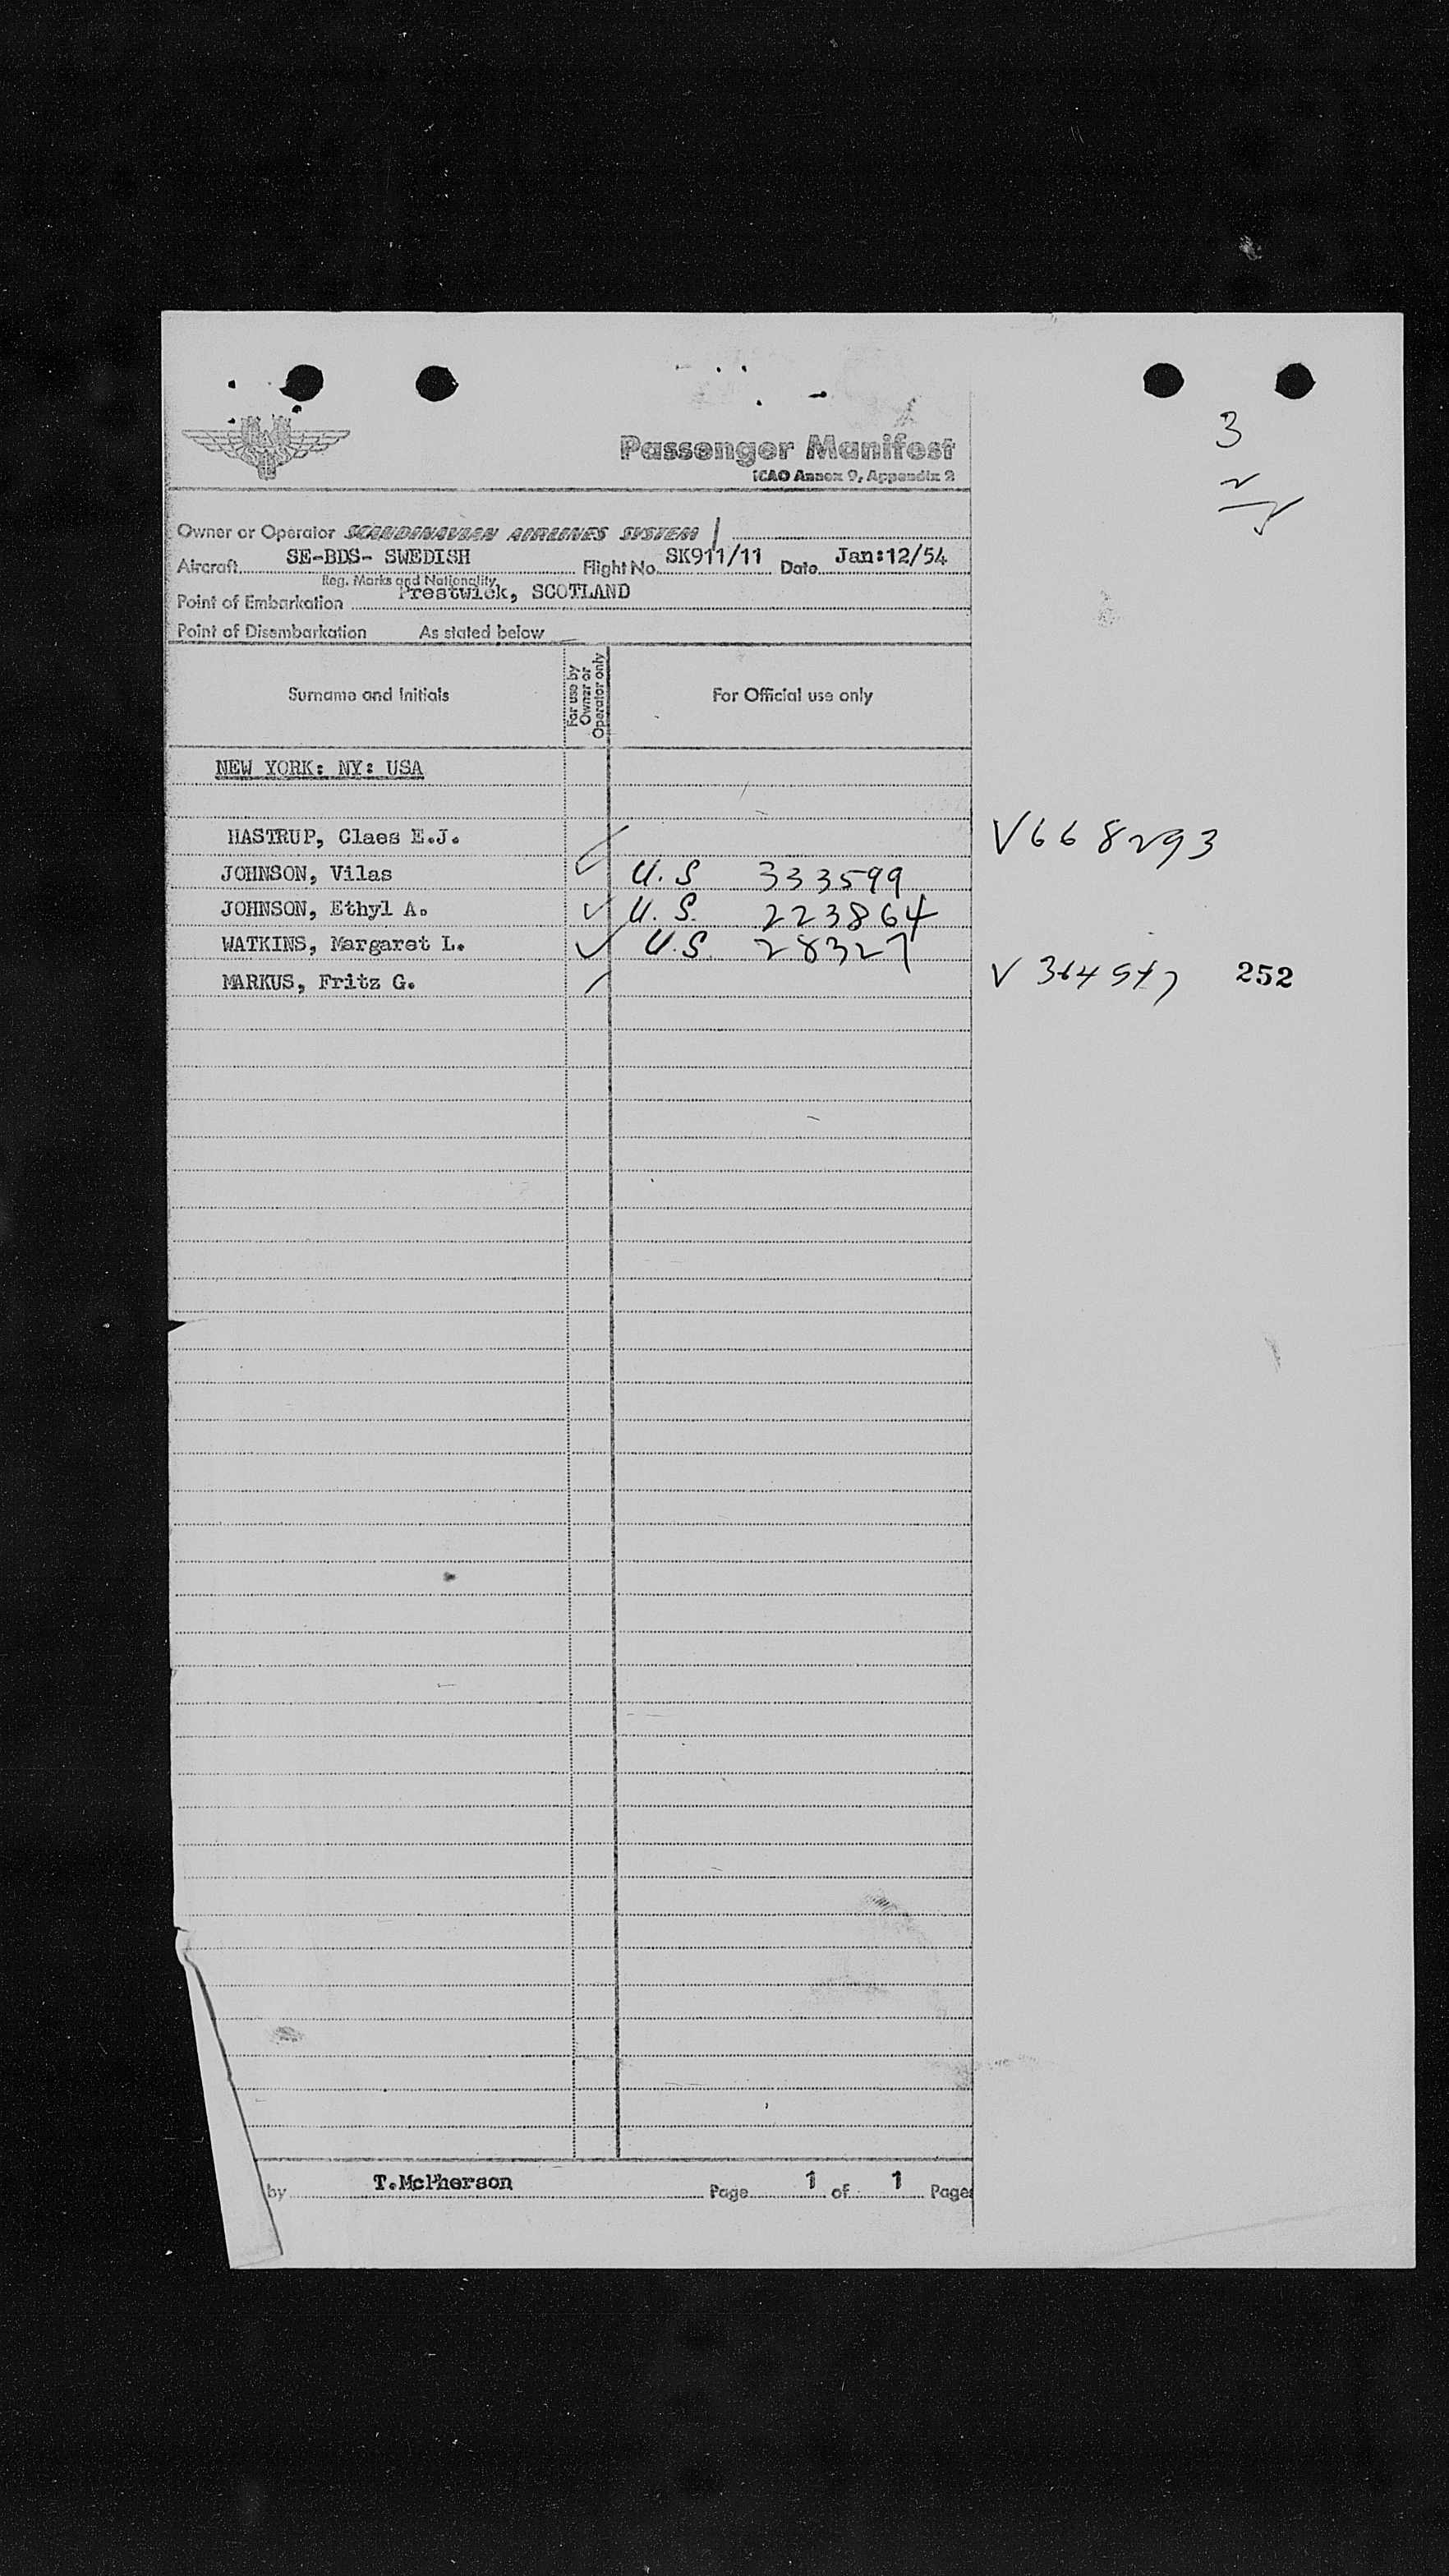 3
2
5
Passenger Manifest
ICAO Annex 9, Appendix 2
Owner or Operator SCANDINAVIAN AIRLINES SYSTEM
Aircraft SE-BDS- SWEDISH Flight No. SK911/11 Date Jan:12/54
Reg. Marks and Nationality
Point of Embarkation Prestwick, SCOTLAND
Point of Disembarkation As stated below
Surname and Initials For use by Owner or Operator only For Official use only
NEW YORK: NY: USA
HASTRUP, Claes E.J. V668293
JOHNSON, Vilas U.S 333599
JOHNSON, Ethyl A. U.S. 223864
WATKINS, Margaret L. U.S. 28327
MARKUS, Fritz G. V 252
by T.McPherson Page 1 of 1 Pages